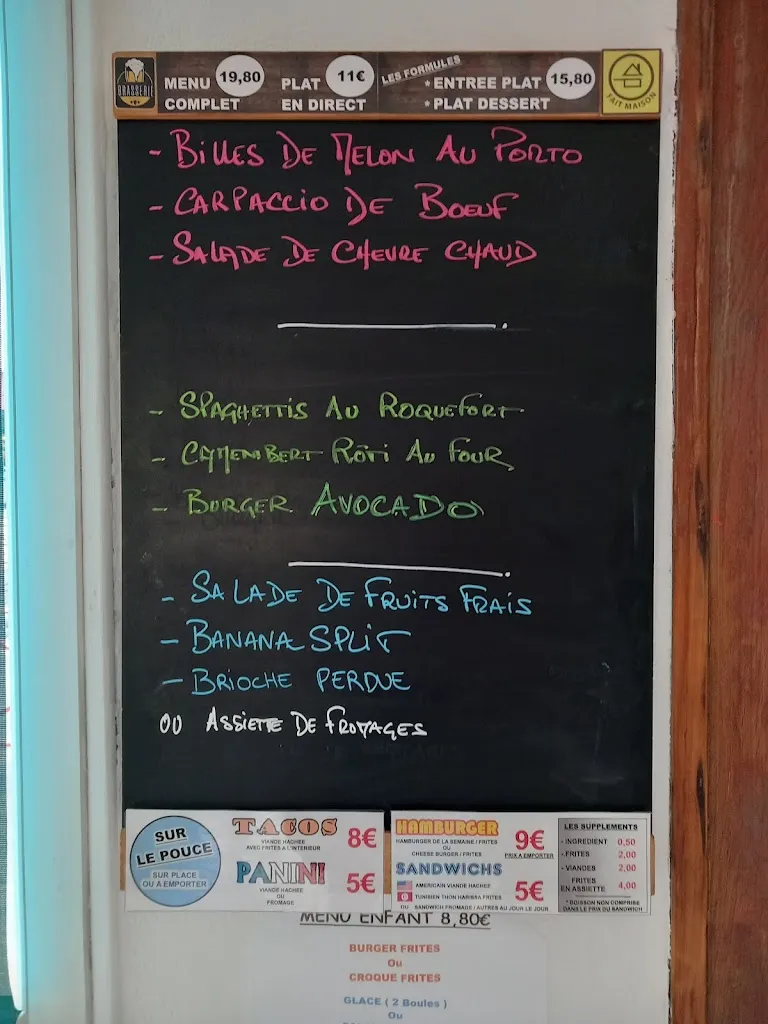 BRASSERIE
MENU 19,80
COMPLET
PLAT 11€
EN DIRECT
LES FORMULES
* ENTREE PLAT 15,80
* PLAT DESSERT
FAIT MAISON
- BILLES DE MELON AU PORTO
- CARPACCIO DE BOEUF
- SALADE DE CHEVRE CHAUD
- SPAGHETTIS AU ROQUEFORT
- CAMEMBERT RÔTI AU FOUR
- BURGER AVOCADO
- SALADE DE FRUITS FRAIS
- BANANA SPLIT
- BRIOCHE PERDUE
OU ASSIETTE DE FROMAGES
SUR
LE POUCE
SUR PLACE
OU À EMPORTER
TACOS 8€
VIANDE HACHÉE
AVEC FRITES A L'INTERIEUR
PANINI 5€
VIANDE HACHÉE
OU
FROMAGE
HAMBURGER 9€
HAMBURGER DE LA SEMAINE / FRITES
OU
CHEESE BURGER / FRITES
PRIX A EMPORTER
SANDWICHS 5€
AMERICAIN VIANDE HACHEE
TUNISIEN THON HARISSA FRITES
OU SANDWICH FROMAGE / AUTRES AU JOUR LE JOUR
LES SUPPLEMENTS
- INGREDIENT 0,50
- FRITES 2,00
- VIANDES 2,00
FRITES
EN ASSIETTE 4,00
* BOISSON NON COMPRISE
DANS LE PRIX DU SANDWICH
MENU ENFANT 8,80€
BURGER FRITES
Ou
CROQUE FRITES
GLACE ( 2 Boules )
Ou